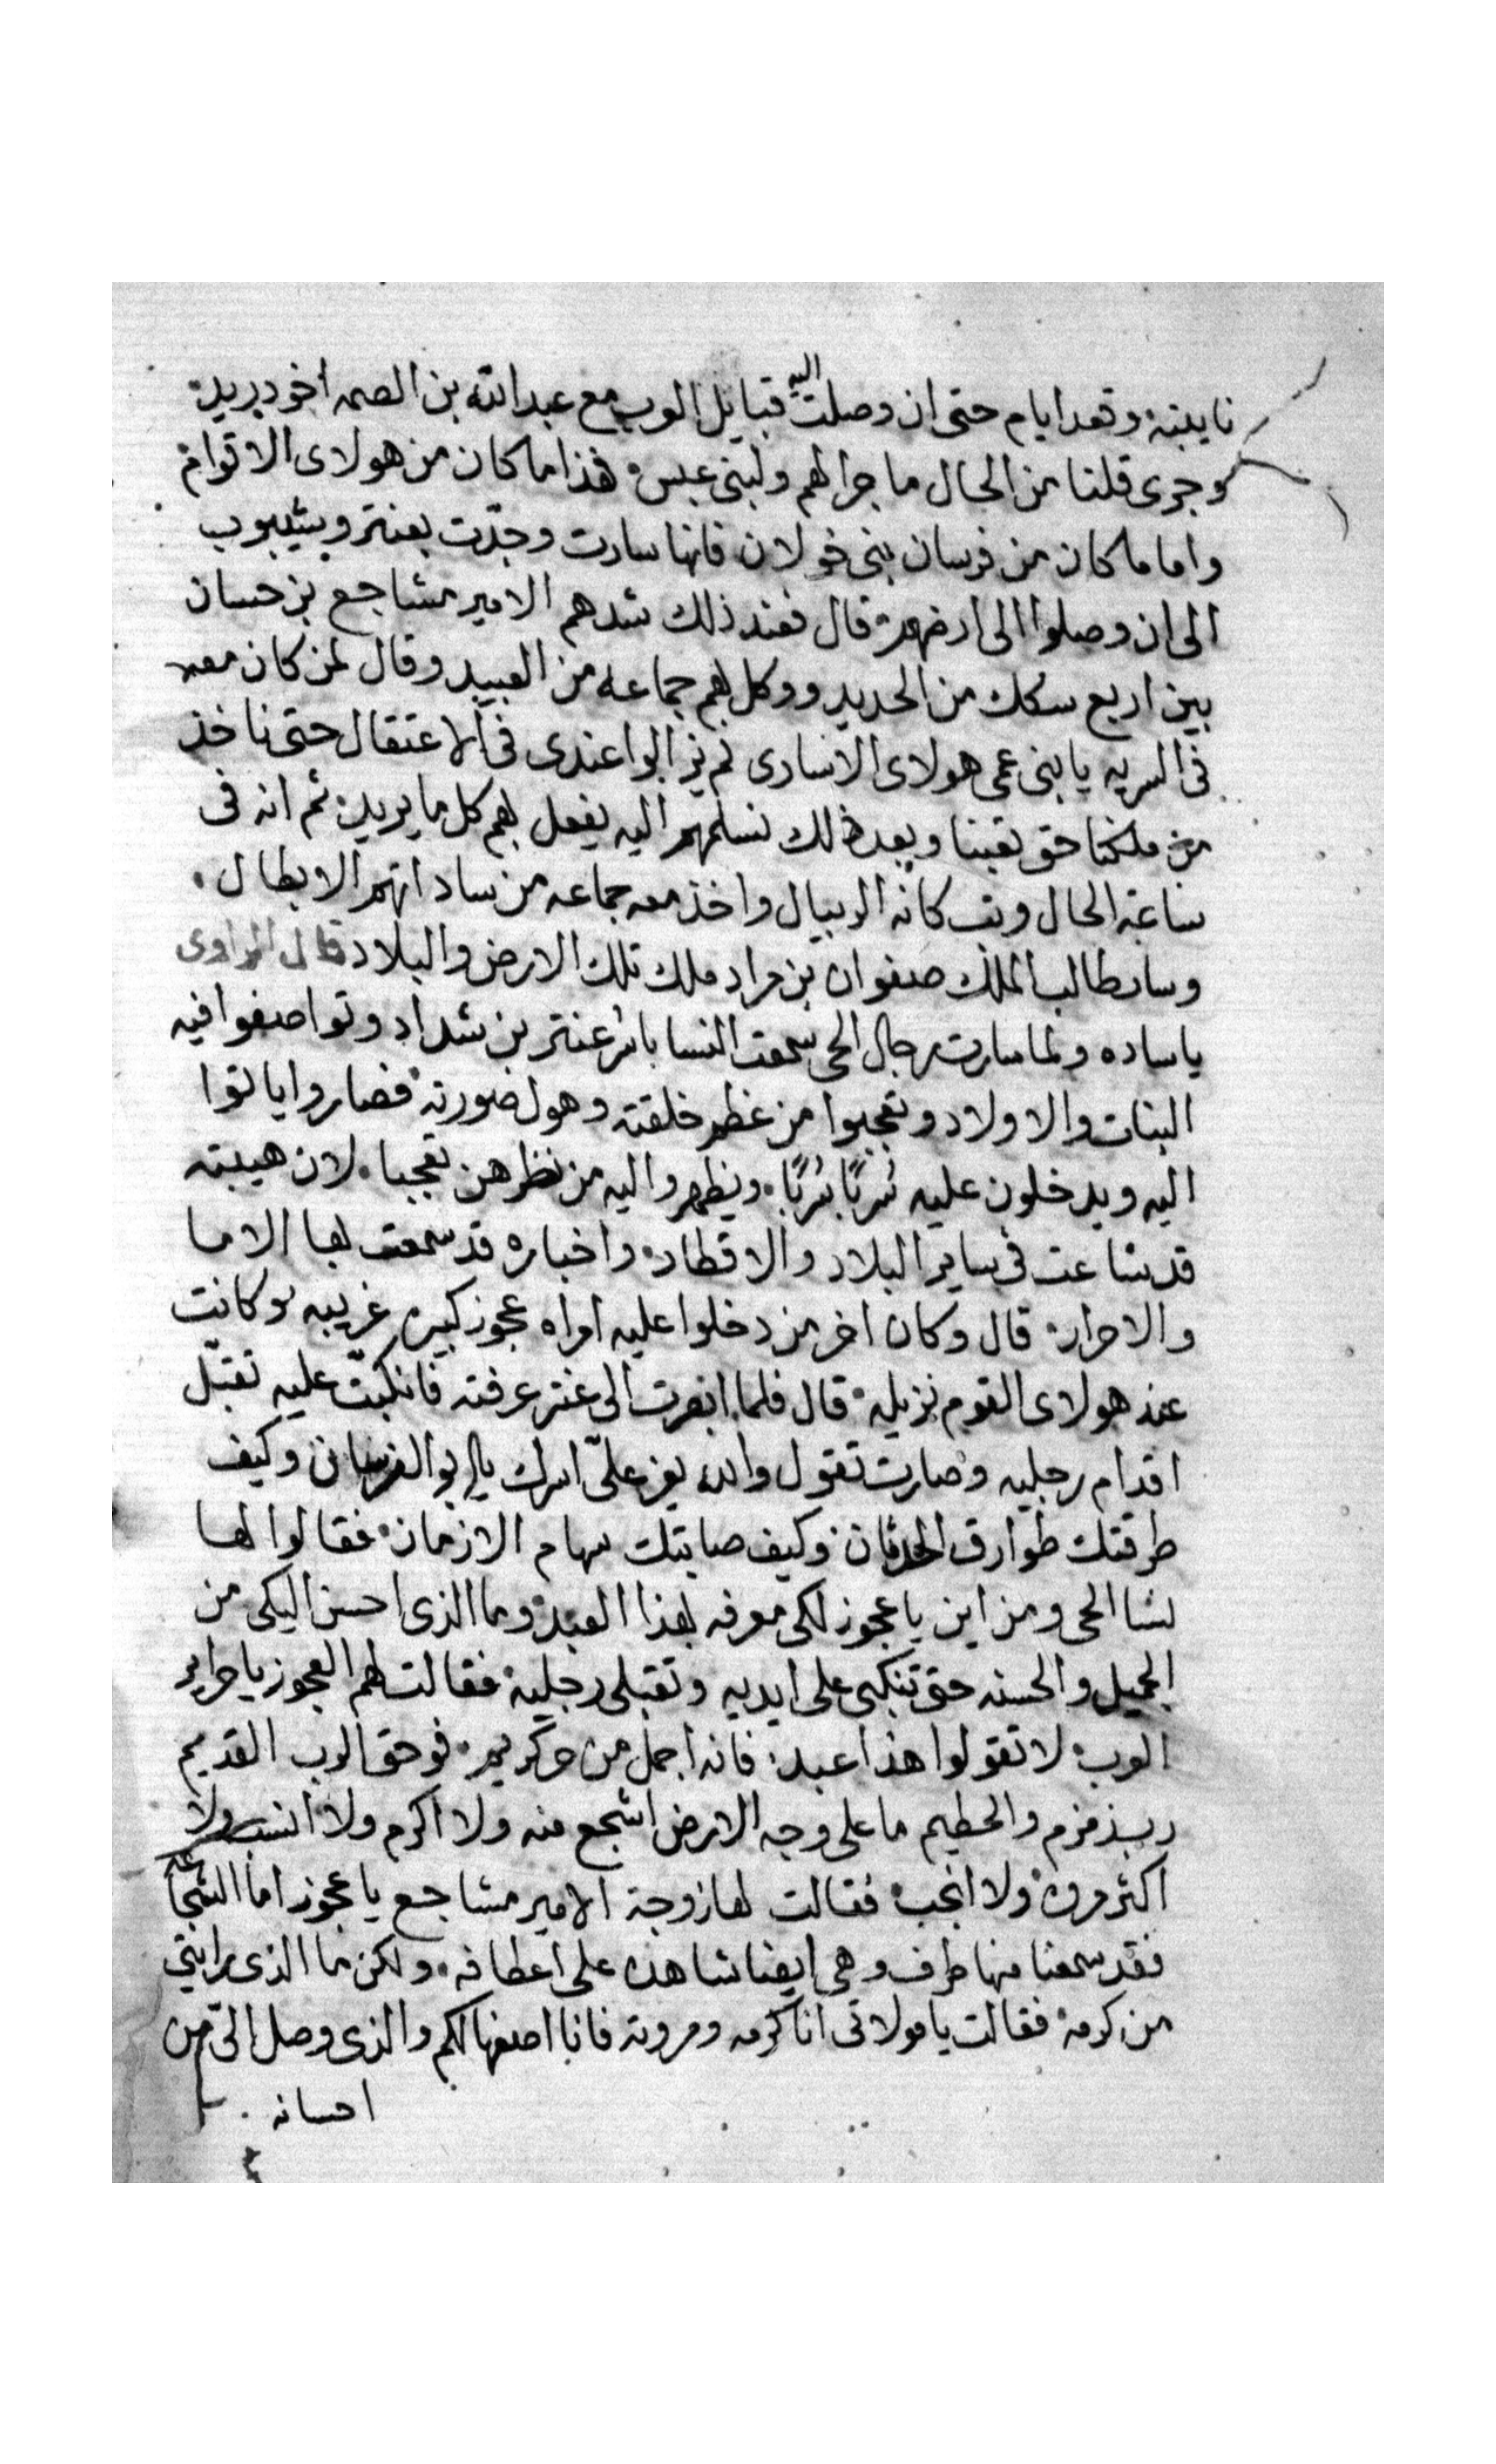 نايبته وقعد ايام حتى ان وصلت اليه قبايل العرب مع عبد الله بن الصمه اخو دريد
وجرى قلنا من الحال ما جرا لهم ولبنى عبس هذا ما كان من هولاى الاقوام
واما ما كان من فرسان بنى خولان فانها سارت وجدّت بعنتر وبشيبوب
الى ان وصلوا الى ارضهم قال فعند ذلك شدهم الامير مشاجع بن حسان
بين اربع سكك من الحديد ووكل بهم جماعه من العبيد وقال لمن كان معه
فى السريه يا بنى عمى هولاى الاسارى لم يزالوا عندى فى الاعتقال حتى ناخذ
من ملكنا حق تعبنا وبعد ذلك نسلمهم اليه يفعل بهم كل ما يريد ثم انه فى
ساعة الحال وثب كانه الريبال واخذ معه جماعه من ساداتهم الابطال
وسار طالب الملك صفوان بن مراد ملك تلك الارض والبلاد قال الراوى
ياساده ولما سارت رجال الحى سمعت النسا باسر عنتر بن شداد وتواصفوا فيه
البنات والاولاد وتعجبوا من عظم خلقته وهول صورته فصاروا ياتوا
اليه ويدخلون عليه سُربًا سُربًا وينظروا اليه من نظرهن تعجبا لان هيبته
قد شاعت فى ساير البلاد والاقطار واخباره قد سمعت بها الاما
والاحرار قال وكان اخر من دخلوا عليه امراه عجوز كبيره غريبه وكانت
عند هولاى القوم نزيله قال فلما ابصرت الى عنتر عرفته فانكبّت عليه تقبّل
اقدام رجليه وصارت تقول والله يعز علىّ اسرك يا ابو الفرسان وكيف
طرقتك طوارق الحدثان وكيف صابتك سهام الازمان فقالوا لها
نسا الحى ومن اين يا عجوز لكى معرفه بهذا العبد وما الذى احسن اليكى من
الجميل والحسنه حتى تنكبى على ايديه وتقبلى رجليه فقالت لهم العجوز يا حراير
العرب لا تقولوا هذا عبد فانه اجمل من حر كريم فوحق الرب القديم
رب زمزم والحطيم ما على وجه الارض اشجع منه ولا اكرم ولا انسب ولا
اكثر مروه ولا انجب فقالت لها زوجة الامير مشاجع يا عجوز اما الشجاعه
فقد سمعنا منها طرف وهى ايضا شاهده على اعطافه ولكن ما الذى رايتى
من كرمه فقالت يا مولاتى انا كرمه ومروته فانا اصفها لكم والذى وصل الىّ من
احسانه